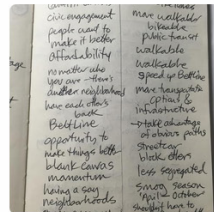 civic engagement
people want to
make it better
affordability
no matter who
you are - there's
another neighborhood
have each other's
back
BeltLine
opportunity to
make things better
blank canvas
momentum
having a say
neighborhoods
more walkable
bikeable
public transit
walkable
walkable
speed up Beltline
more transportation
options &
infrastructure
take advantage
of obvious paths
streetcar
block others
less segregated
smog season
October
shouldn't have to